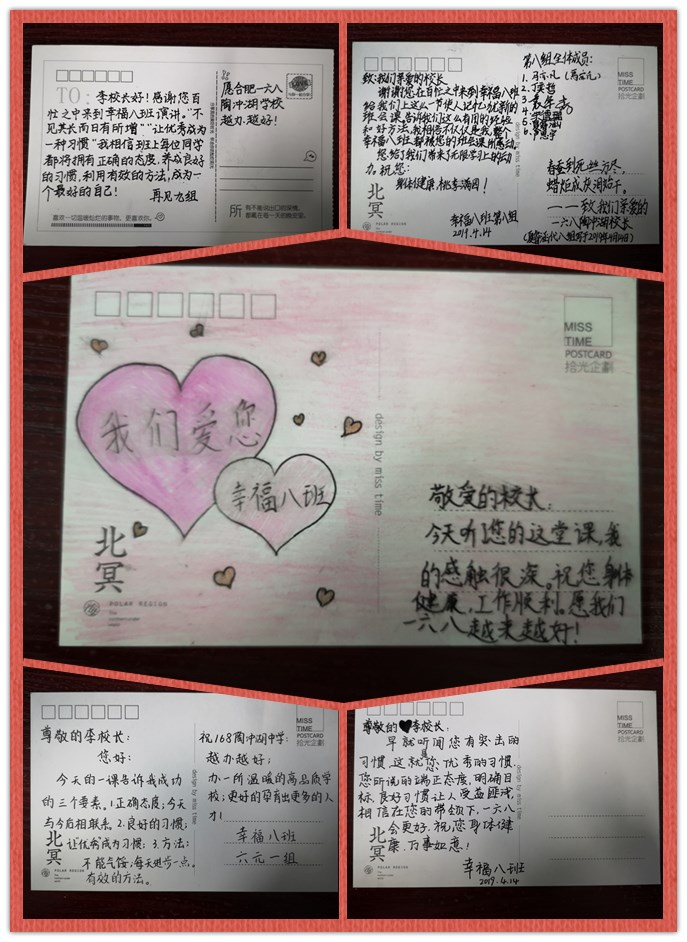 TO:
李校长好！感谢您百
忙之中来到幸福八班演讲。"不
见其长而日有所增""让优秀成为
一种习惯"我相信班上每位同学
都将拥有正确的态度，养成良好
的习惯，利用有效的方法，成为一
个最好的自己！
再见九组
喜欢一切温暖灿烂的事物，更喜欢你。
愿合肥一六八
陶冲湖学校
越办越好！
所
致：我们亲爱的校长
谢谢您在百忙之中来到幸福八班
给我们上这么一节使人记忆犹新的
班会课，告诉我们这么有用的经验
和好方法，我相信不仅仅是我，整个
幸福八班都被您的班会课所感动。
您给了我们带来了无限学习上的动
力。祝您：
身体健康，桃李满园！
北冥
幸福八班第八组
2019.4.14
第八组全体成员：
MISS
TIME
POSTCARD
拾光企劃
design by miss time
春蚕到死丝方尽，
蜡炬成灰泪始干。
——致我们亲爱的
一六八陶冲湖校长
MISS
TIME
POSTCARD
拾光企劃
我们爱您
幸福八班
北冥
design by miss time
敬爱的校长：
今天听您的这堂课，我
的感触很深。祝您身体
健康，工作顺利。愿我们
一六八越来越好！
尊敬的李校长：
您好：
今天的一课告诉我成功
的三个要素。1.正确态度：今天
与今后相联系。2.良好的习惯：
让优秀成为习惯；3.方法：
不能气馁；每天进步一点。
有效的方法。
北冥
POLAR REGION
design by miss time
MISS
TIME
POSTCARD
拾光企劃
祝168陶冲湖中学：
越办越好；
办一所温暖的高品质学
校；更好的孕育出更多的人
才！
幸福八班
六元一组
尊敬的李校长：
早就听闻您有突出的
习惯，这就是您，优秀的习惯。
您所说的端正态度，明确目
标，良好习惯让人受益匪浅，
相信在您的带领下，一六八
会更好，祝您身体健
康，万事如意！
北冥
POLAR REGION
幸福八班
2019.4.14
design by miss time
MISS
TIME
POSTCARD
拾光企劃